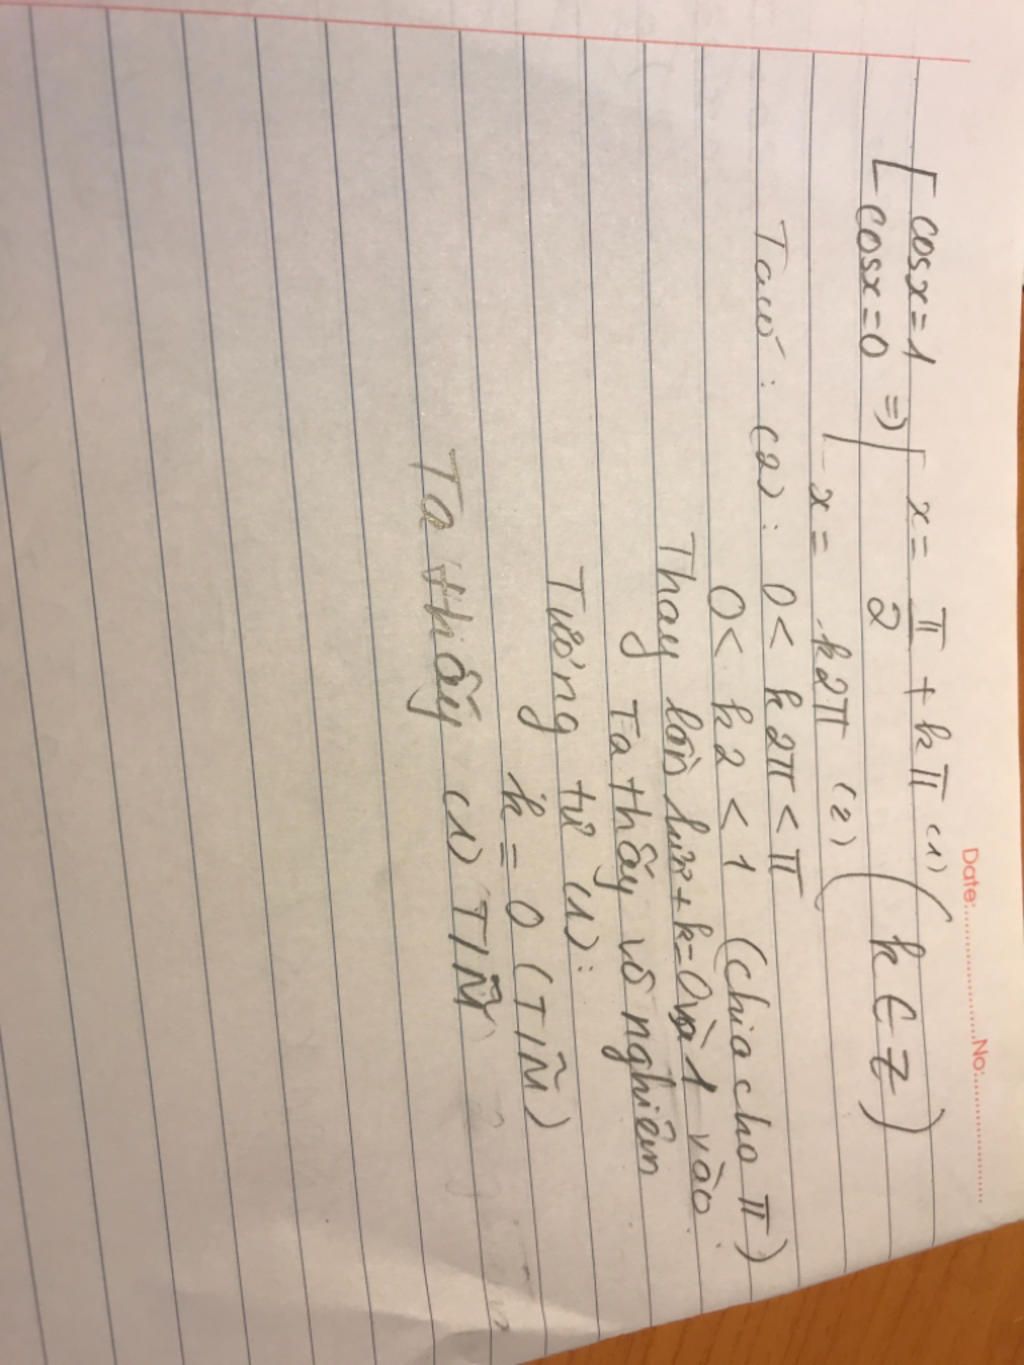 Date:............................No:........................
cosx=1 x= π/2 + kπ (1)
cosx=0 => (k ∈ Z)
x= k2π (2)
Ta có : (2) : 0 < k2π < π
0 < k2 < 1 (chia cho π)
Thay lần lượt k=0 và 1 vào
Ta thấy vô nghiệm
Tương tử (1):
k = 0 (TIÑ)
Ta thấy (1) TIÑ